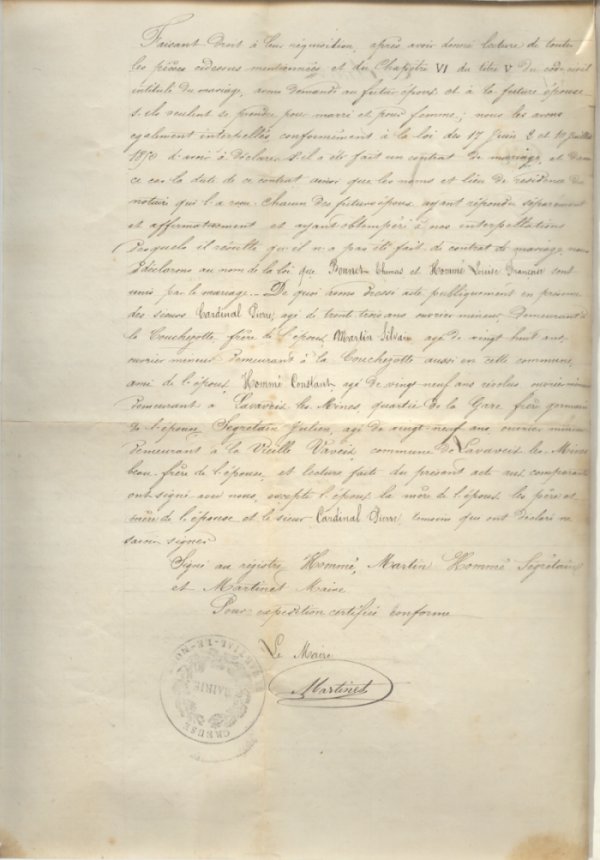 Faisant droit à leur réquisition, après avoir donné lecture de toutes
les pièces cidessus mentionnées et du Chapitre VI du titre V du code civil
intitulé du mariage, avons demandé au futur époux et à la future épouse
s'ils veulent se prendre pour mari et pour femme; nous les avons
également interpellés, conformément à la loi des 17 Juin & 10 Juillet
1850 d'avoir à déclarer s'il a été fait un contrat de mariage, et dans
ce cas la date de ce contrat ainsi que les noms et lieu de résidence du
notaire qui l'a reçu. Chacun des futurs époux ayant répondu séparément
et affirmativement et ayant obtempéré à nos interpellations
desquels il résulte qu'il n'a pas été fait de contrat de mariage, nous
déclarons au nom de la loi que Bonnet Thomas et Hommé Louise Françoise sont
unis par le mariage. De quoi avons dressé acte publiquement en présence
des sieurs Cardinal Pierre, agé de trente trois ans ouvrier mineur demeurant à
la Couchezotte, frère de l'époux, Martin Silvain agé de vingt huit ans,
ouvrier mineur demeurant à la Couchezotte aussi en cette commune,
ami de l'époux, Hommé Constant agé de vingt-neuf ans révolus, ouvrier mineur
demeurant à Lavaveix les Mines, quartier de la Gare frère germain
de l'épouse, Segretain Julien, agé de vingt-neuf ans, ouvrier mineur
demeurant à la Vieille Vaveix, commune de Lavaveix les Mines
beau-frère de l'épouse, et lecture faite du présent acte aux comparants
ont signé avec nous, excepté l'époux la mère de l'époux les père et
mère de l'épouse et le sieur Cardinal Pierre, témoins qui ont déclaré ne
savoir signer.
Signé au registre Hommé, Martin Hommé Segrétain
et Martinet Maire
Pour expédition certifiée conforme
Le Maire
Martinet
MAIRIE
CREUSE